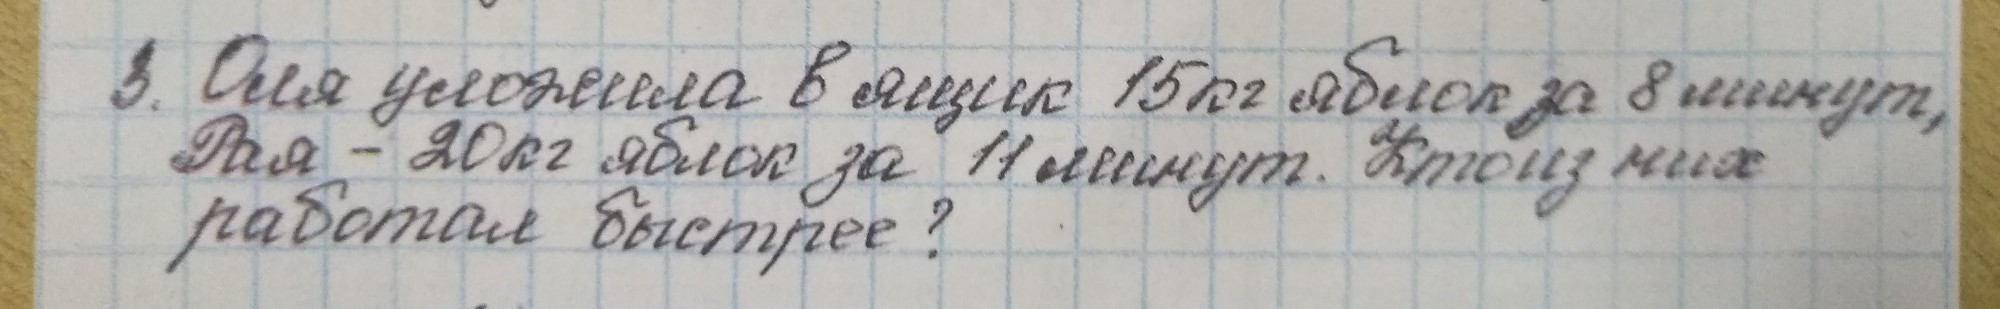 3. Оля уложила в ящик 15кг яблок за 8 минут,
Рая - 20кг яблок за 11 минут. Кто из них
работал быстрее?